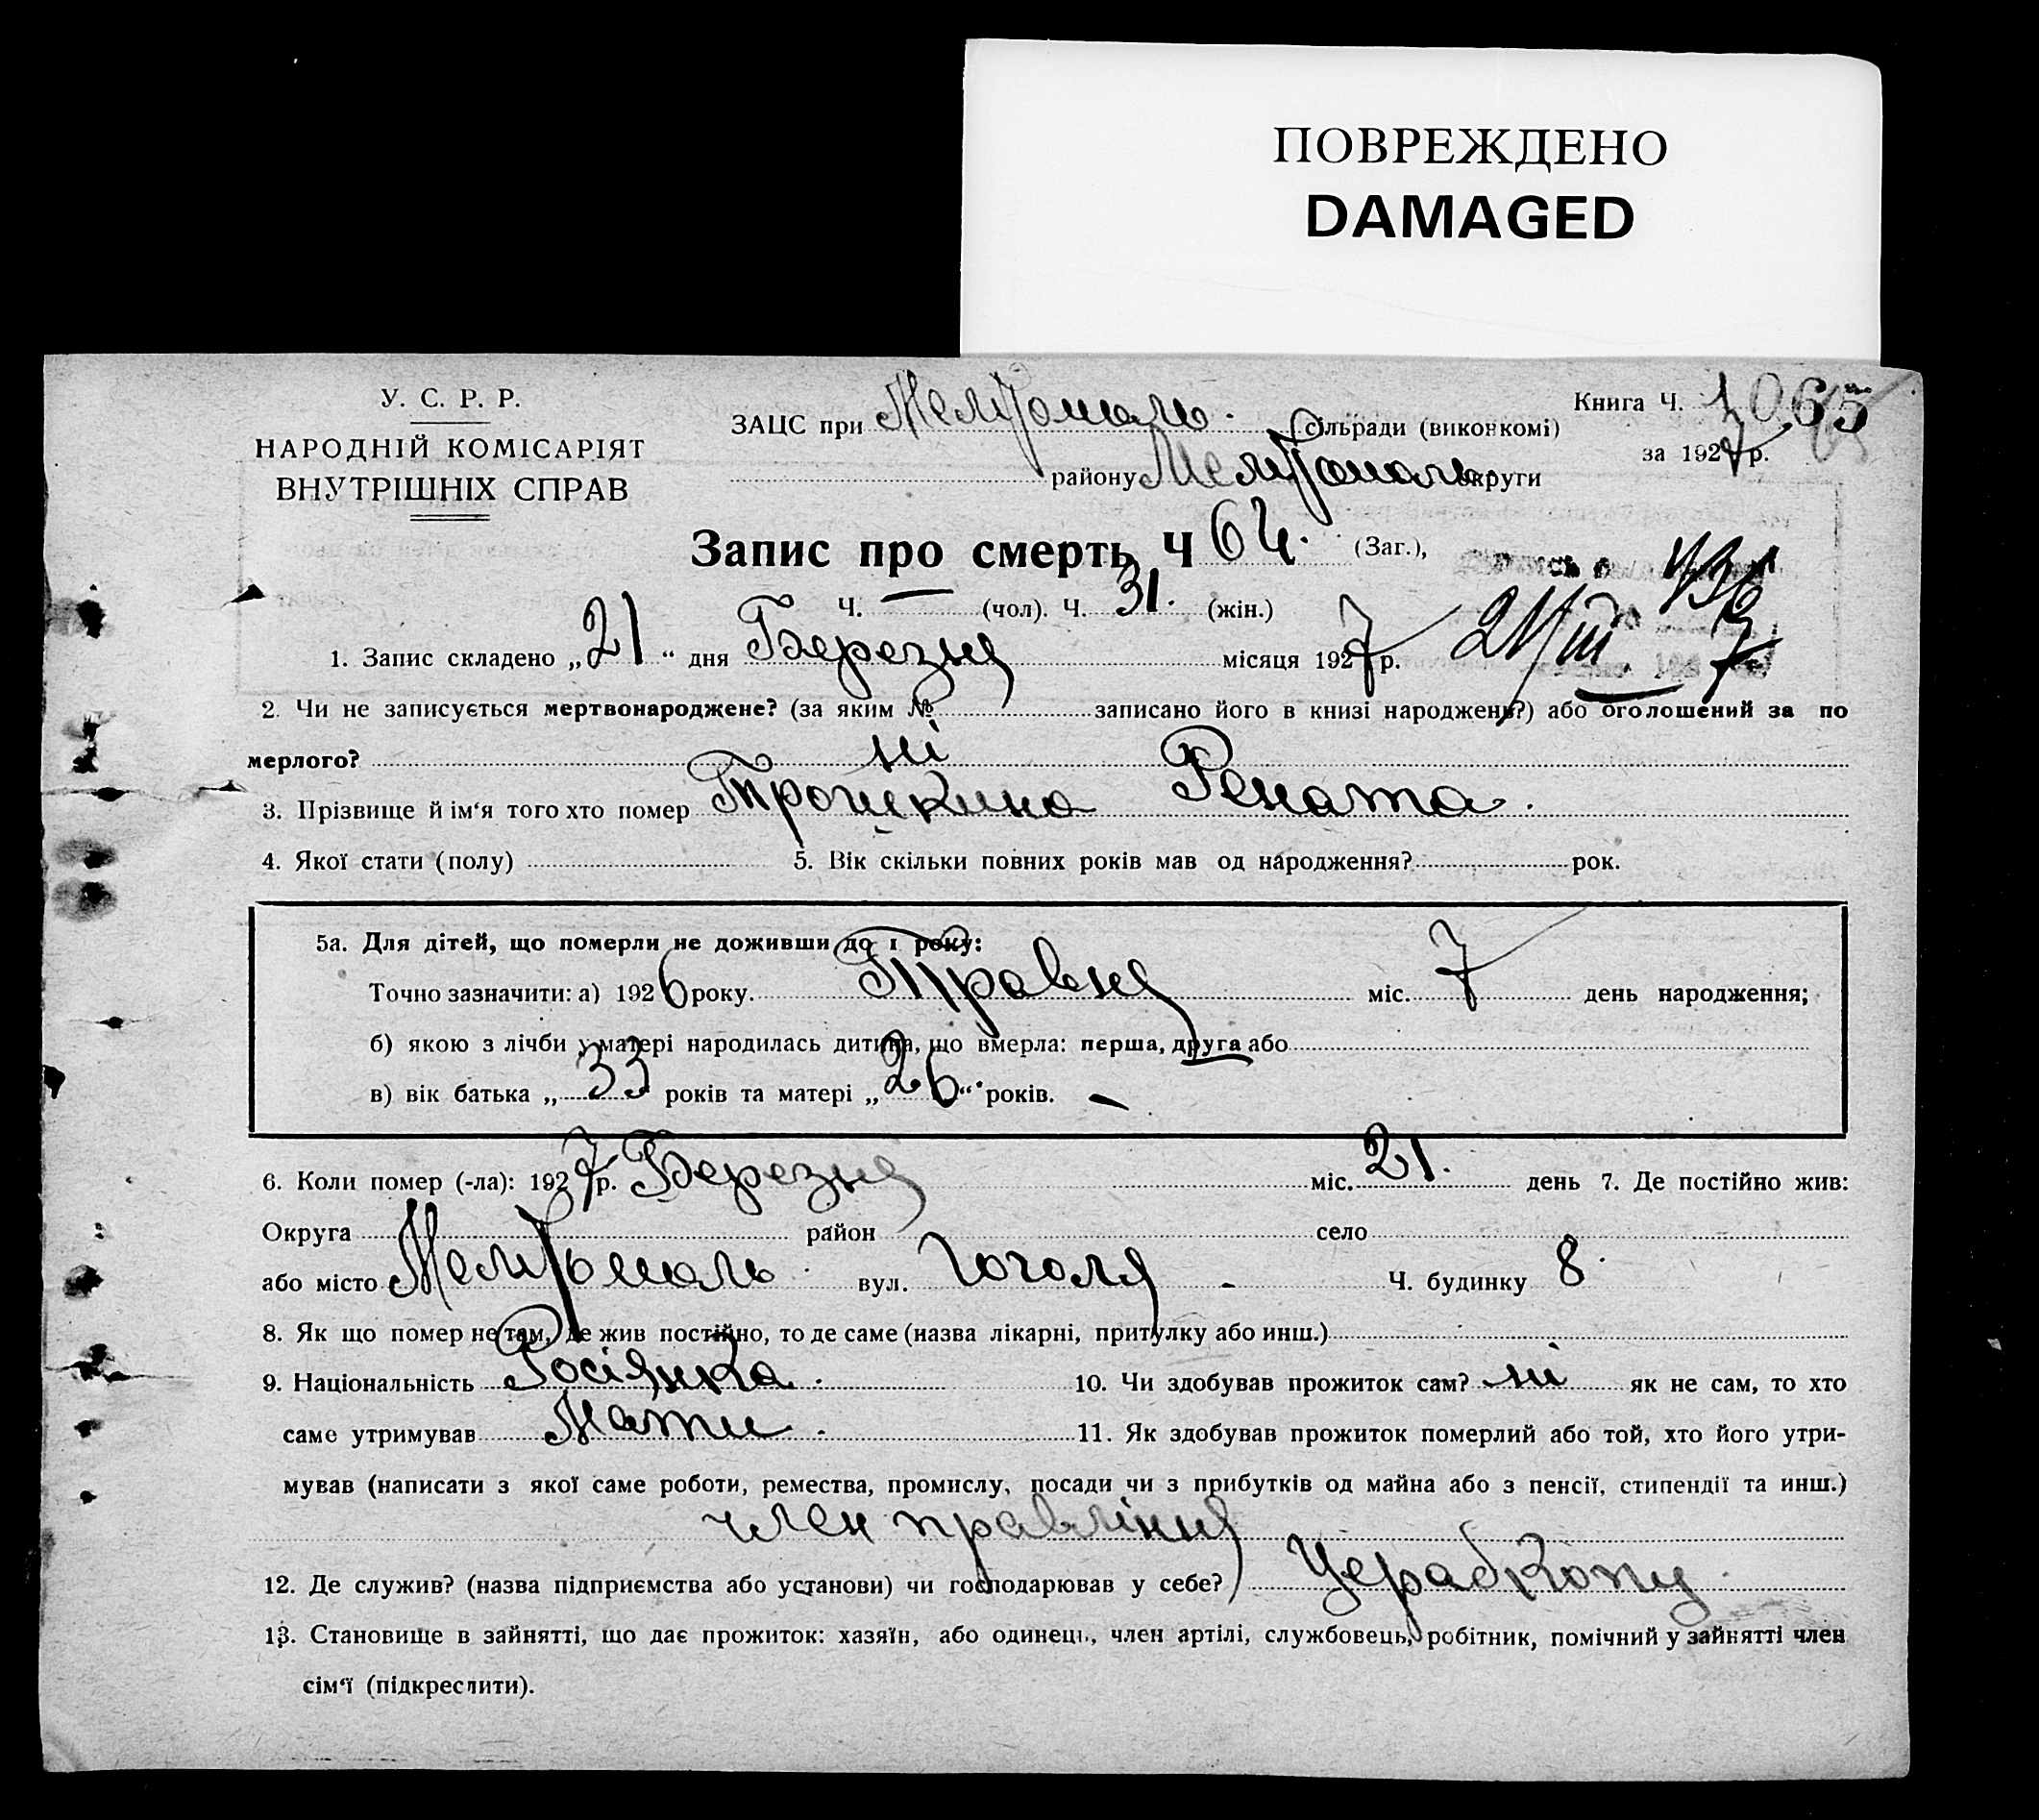 ПОВРЕЖДЕНО
DAMAGED
У. С. Р. Р.
НАРОДНІЙ КОМІСАРІЯТ
ВНУТРІШНІХ СПРАВ
Книга Ч. 1 065
за 1927 р.
ЗАЦС при Мелітополь. сільради (виконкомі)
району Мелітополь округи
Запис про смерть Ч 64. (Заг.),
Ч. — (чол). Ч. 31. (жін.)
1. Запис складено „21“ дня Березня місяця 1927 р. 21/III 7
2. Чи не записується мертвонароджене? (за яким № записано його в книзі народжень?) або оголошений за по
мерлого? ні
3. Прізвище й ім‘я того хто помер Трошкина Рената.
4. Якої стати (полу) 5. Вік скільки повних років мав од народження? рок.
5а. Для дітей, що померли не доживши до 1 року:
Точно зазначити: а) 1926 року. Травня міс. 7 день народження;
б) якою з лічби у матері народилась дитина, що вмерла: перша, друга або
в) вік батька „33 років та матері „26“ років. —
6. Коли помер (-ла): 1927 р. Березня міс. 21. день 7. Де постійно жив:
Округа район село
або місто Мелітополь. вул. Гоголя - Ч. будинку 8.
8. Як що помер не там, де жив постійно, то де саме (назва лікарні, притулку або инш.)
9. Національність Росіянка. 10. Чи здобував прожиток сам? ні як не сам, то хто
саме утримував Мати. 11. Як здобував прожиток померлий або той, хто його утри-
мував (написати з якої саме роботи, ремества, промислу, посади чи з прибутків од майна або з пенсії, стипендії та инш.)
член правління
12. Де служив? (назва підприємства або установи) чи господарював у себе? Церабкопу.
13. Становище в зайнятті, що дає прожиток: хазяїн, або одинець, член артілі, службовець, робітник, помічний у зайнятті член
сім‘ї (підкреслити).